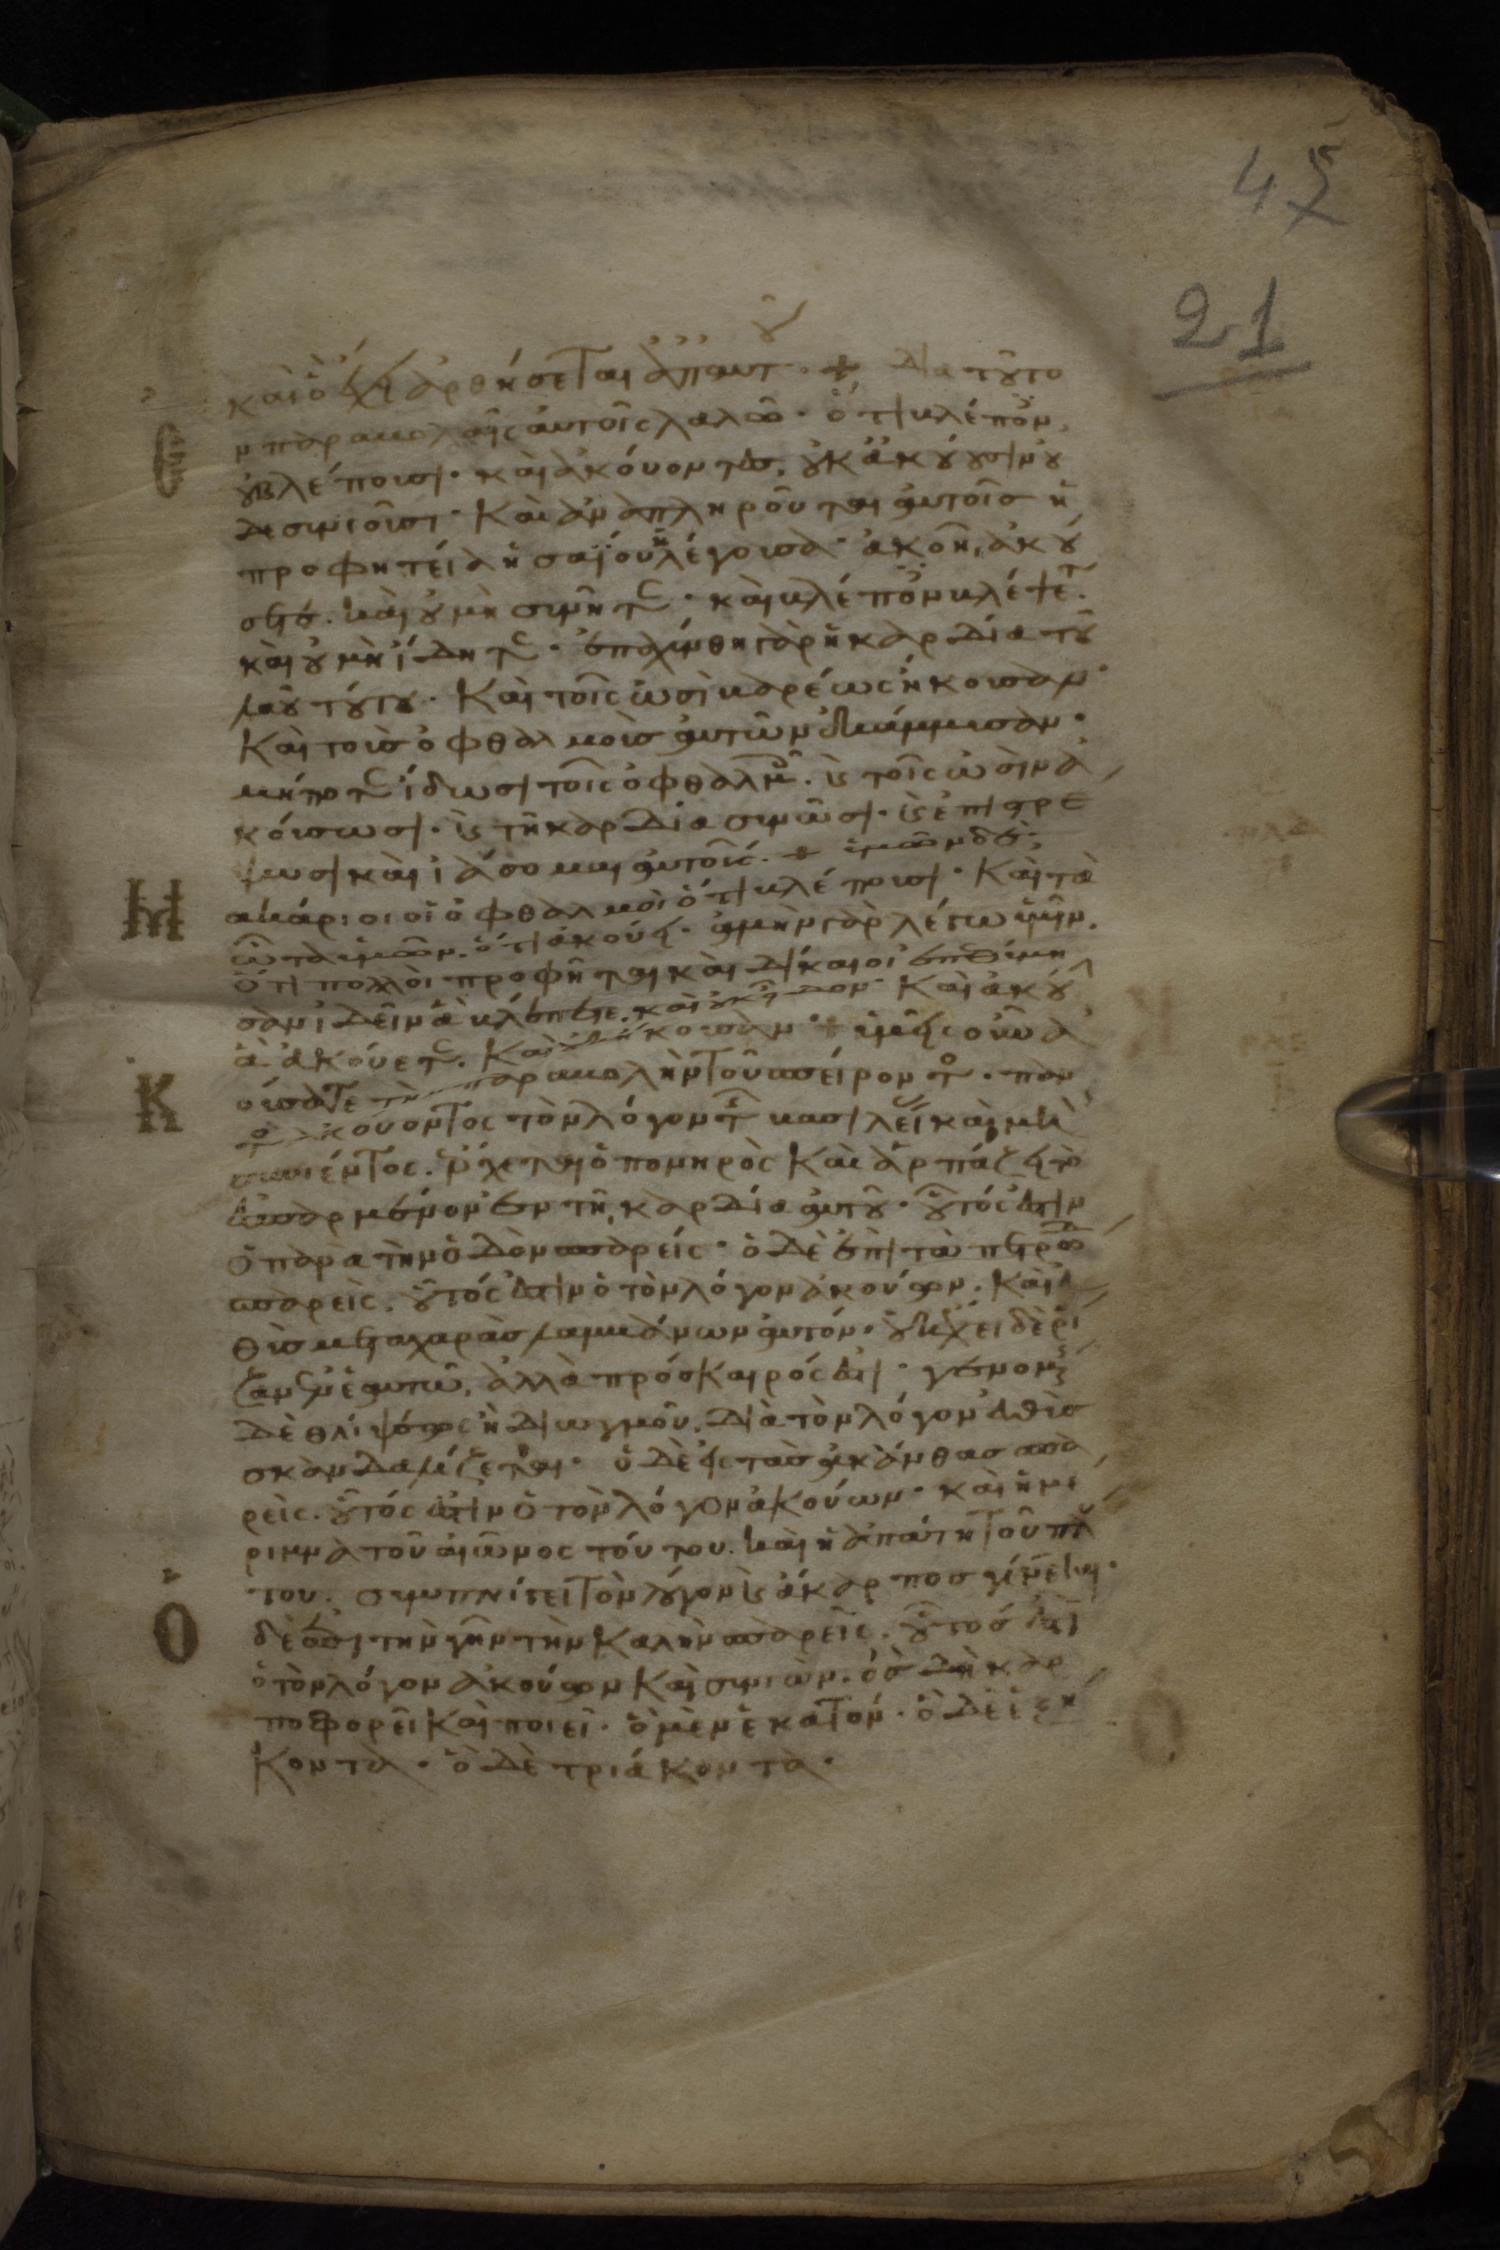 45
21
καὶ ὃ ἔχει ἀρθήσεται ἀπ αυτοῦ + Δια τοῦτο
ἐν παραβολαῖς αὐτοῖς λαλῶ · ὅτι βλέποντες
οὐ βλέπουσι · καὶ ἀκούοντες, οὐκ ἀκούουσιν οὐ
δὲ συνιοῦσι · Καὶ ἀναπληροῦται αὐτοῖς ἡ
προφητεία ἡσαΐου ἡ λέγουσα · ἀκοῆ ἀκού
σετε. καὶ οὐ μὴ συνῆτε · καὶ βλέποντες βλέψετε.
καὶ οὐ μὴ ἴδητε · ἐπαχύνθη γὰρ ἡ καρδία τοῦ
λαοῦ τούτου · Καὶ τοῖς ὠσὶ βαρέως ἤκουσαν ·
Καὶ τοὺς ὀφθαλμοὺς αὐτῶν ἐκάμμυσαν ·
μήποτε ἴδωσι τοῖς ὀφθαλμοῖς. καὶ τοῖς ὠσὶν ἀ
κούσωσι · καὶ τῆ καρδία συνῶσι · καὶ ἐπιστρέ
ψωσι καὶ ἰάσομαι αὐτούς. + ὑμῶν δὲ
Μ
ακάριοι οἱ ὀφθαλμοὶ ὅτι βλέπουσι · Καὶ τὰ
ὦτα ὑμῶν. ὅτι ἀκούει · ἀμὴν γὰρ λέγω ὑμῖν.
Ὅτι πολλοὶ προφῆται καὶ δίκαιοι ἐπεθύμη
σαν ἰδεῖν ἃ βλέπετε. καὶ οὐκ εἶδον · Καὶ ἀκοῦσαι
ἃ ἀκούετε. Καὶ οὐκ ἤκουσαν · + ὑμεῖς οὖν ἀ
Κ
ούσατε τὴν παραβολὴν τοῦ σπείροντος · παν
τὸς ἀκούοντος τὸν λόγον τῆς βασιλείας καὶ μὴ
συνιέντος. ἔρχεται ὁ πονηρὸς Καὶ ἁρπάζει τὸ
ἐσπαρμένον ἐν τῆ καρδία αὐτοῦ · οὗτός ἐστιν
ὁ παρα τὴν ὁδὸν σπαρείς · ὁ δὲ ἐπὶ τὰ πετρώδη
σπαρείς. οὗτός ἐστιν ὁ τὸν λόγον ἀκούων. Καὶ εὐ
θὺς μετα χαρᾶς λαμβάνων αὐτόν · οὐκ ἔχει δὲ ῥί
ζαν ἐν ἑαυτῶ, ἀλλὰ πρόσκαιρός ἐστι · γενομένης
δὲ θλίψεως ἢ διωγμοῦ. διὰ τὸν λόγον εὐθὺς
σκανδαλίζεται · ὁ δὲ εἰς τὰς ἀκάνθας σπα
ρείς. οὗτός ἐστιν ὁ τὸν λόγον ἀκούων · καὶ ἡ μέ
ριμνα τοῦ αἰῶνος τούτου. καὶ ἡ ἀπάτη τοῦ πλού
του. συμπνίγει τὸν λόγον καὶ ἄκαρπος γίνεται ·
Ὁ
δὲ ἐπὶ τὴν γῆν τὴν καλὴν σπαρείς. οὗτός ἐστι
ὁ τὸν λόγον ἀκούων Καὶ συνιών. ὃς δὴ καρ
ποφορεῖ καὶ ποιεῖ · ὁ μὲν ἑκατόν · ὁ δὲ ἑξή
κοντα · ὁ δὲ τριάκοντα ·